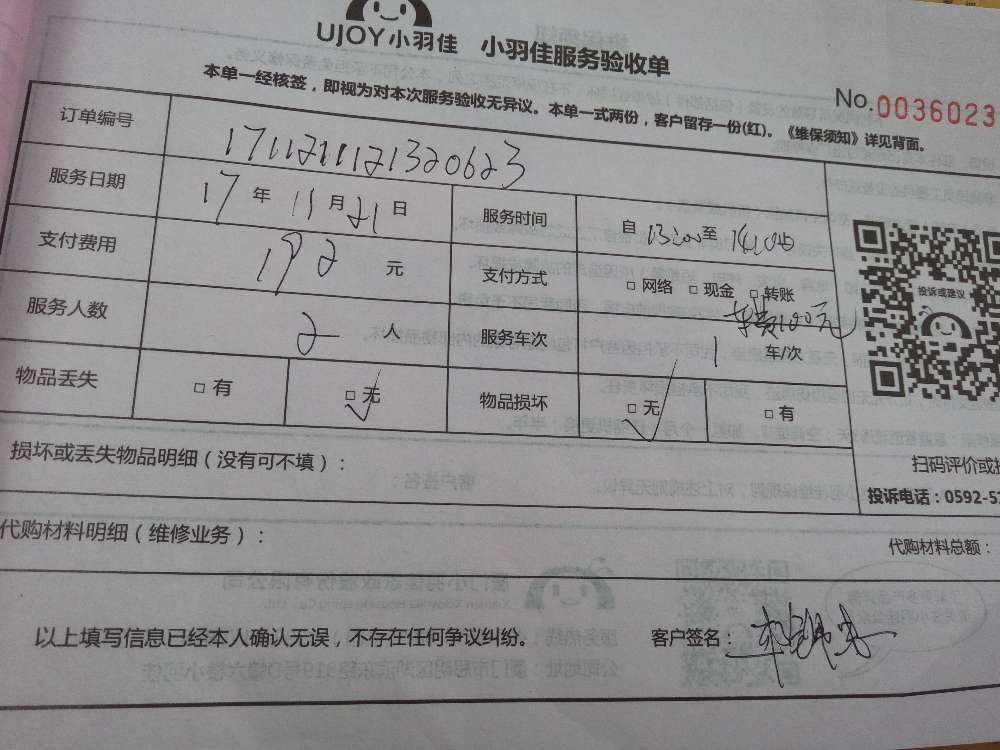 UJOY小羽佳 小羽佳服务验收单
本单一经核签，即视为对本次服务验收无异议。本单一式两份，客户留存一份(红)。《维保须知》详见背面。
No.0036023
订单编号 1711211121320623
服务日期 17年11月21日 服务时间 自13:00至14:10
支付费用 192元 支付方式 □网络 □现金 □转账
车费100元
服务人数 2人 服务车次 1车/次
物品丢失 □有 □无 物品损坏 □无 □有
投诉或建议
损坏或丢失物品明细（没有可不填）：
扫码评价或
投诉电话：0592-5
代购材料明细（维修业务）：
代购材料总额：
以上填写信息已经本人确认无误，不存在任何争议纠纷。 客户签名：